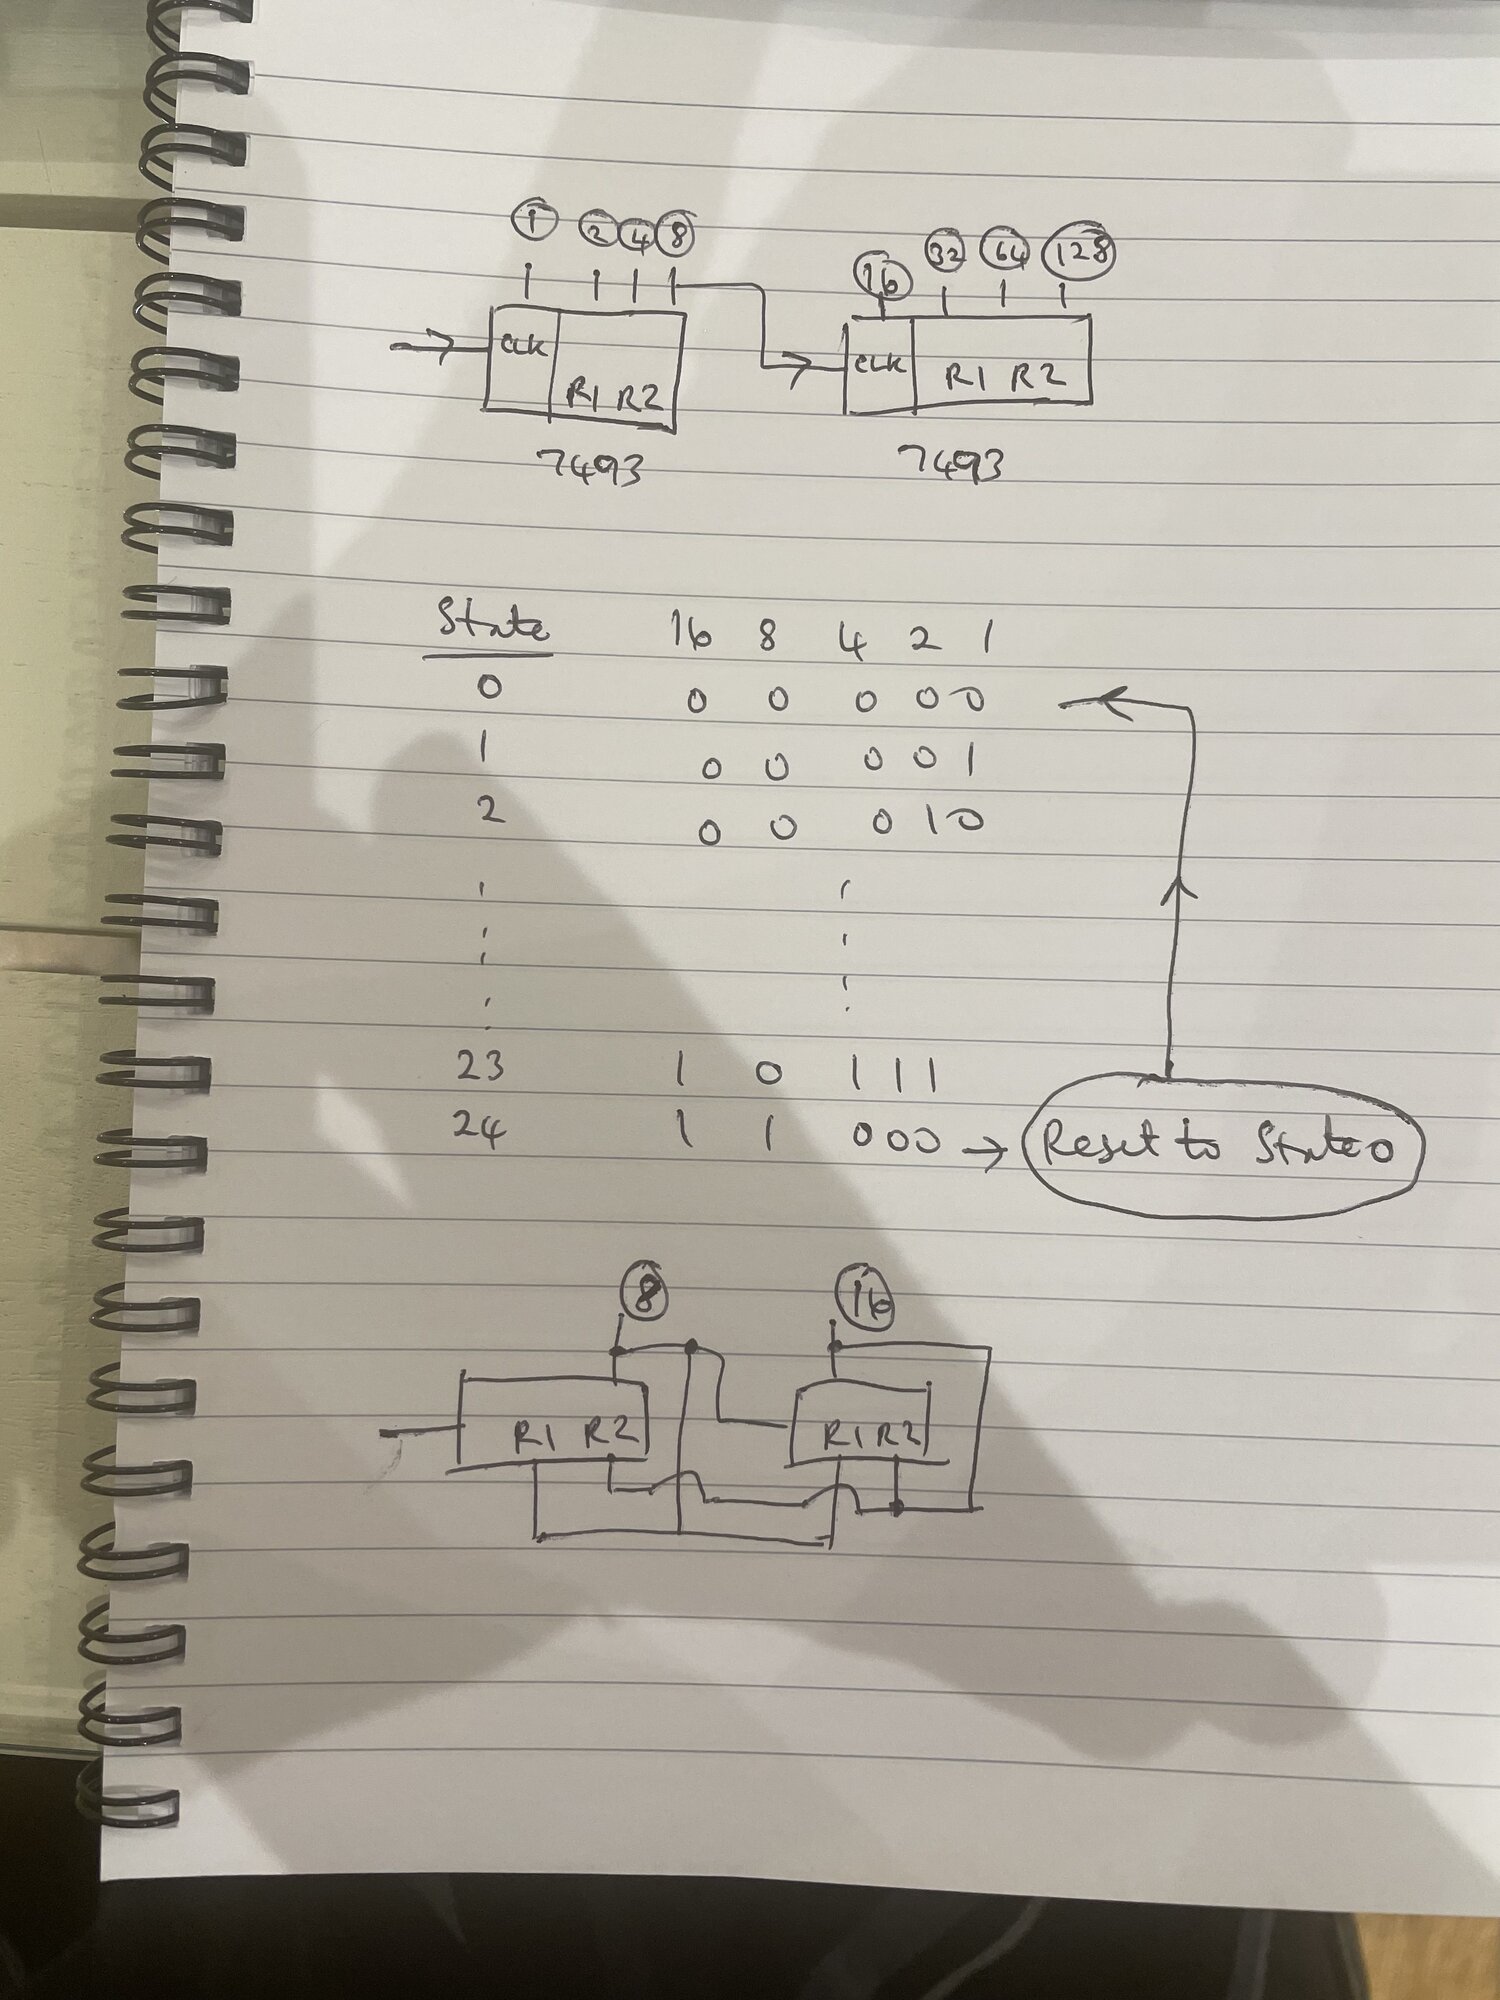 1 2 4 8
16 32 64 128
CLK CLK
R1 R2 R1 R2
7493 7493
State 16 8 4 2 1
0 0 0 0 0 0
1 0 0 0 0 1
2 0 0 0 1 0
23 1 0 1 1 1
24 1 1 0 0 0 → Reset to State 0
8 16
R1 R2 R1 R2